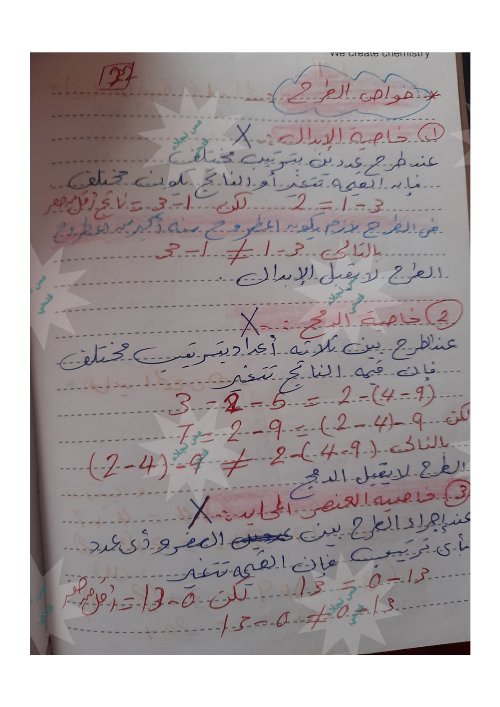 We create chemistry
27
* خواص الطرح
① خاصية الإبدال : X
عند طرح عددين بترتيب مختلف
فإن القيمة تتغير أو الناتج يكون مختلف
3-1 = 2 لكن 1-3 = ناتج أقل من صفر
في الطرح لازم يكون المطروح منه أكبر من المطروح
بالتالى 3-1 ≠ 1-3
الطرح لا يقبل الإبدال .
② خاصية الدمج : X
عند الطرح بين ثلاثة أعداد بترتيب مختلف
فإن قيمة الناتج تتغير
(9-4)-2 = 5-2 = 3
لكن 9-(4-2) = 9-2 = 7
بالتالى (9-4)-2 ≠ 9-(4-2)
الطرح لا يقبل الدمج
③ خاصية العنصر المحايد : X
عند إجراء الطرح بين الصفر وأى عدد
بأى ترتيب فإن القيمة تتغير
13-0 = 13 لكن 0-13 = أقل من صفر
13-0 ≠ 0-13